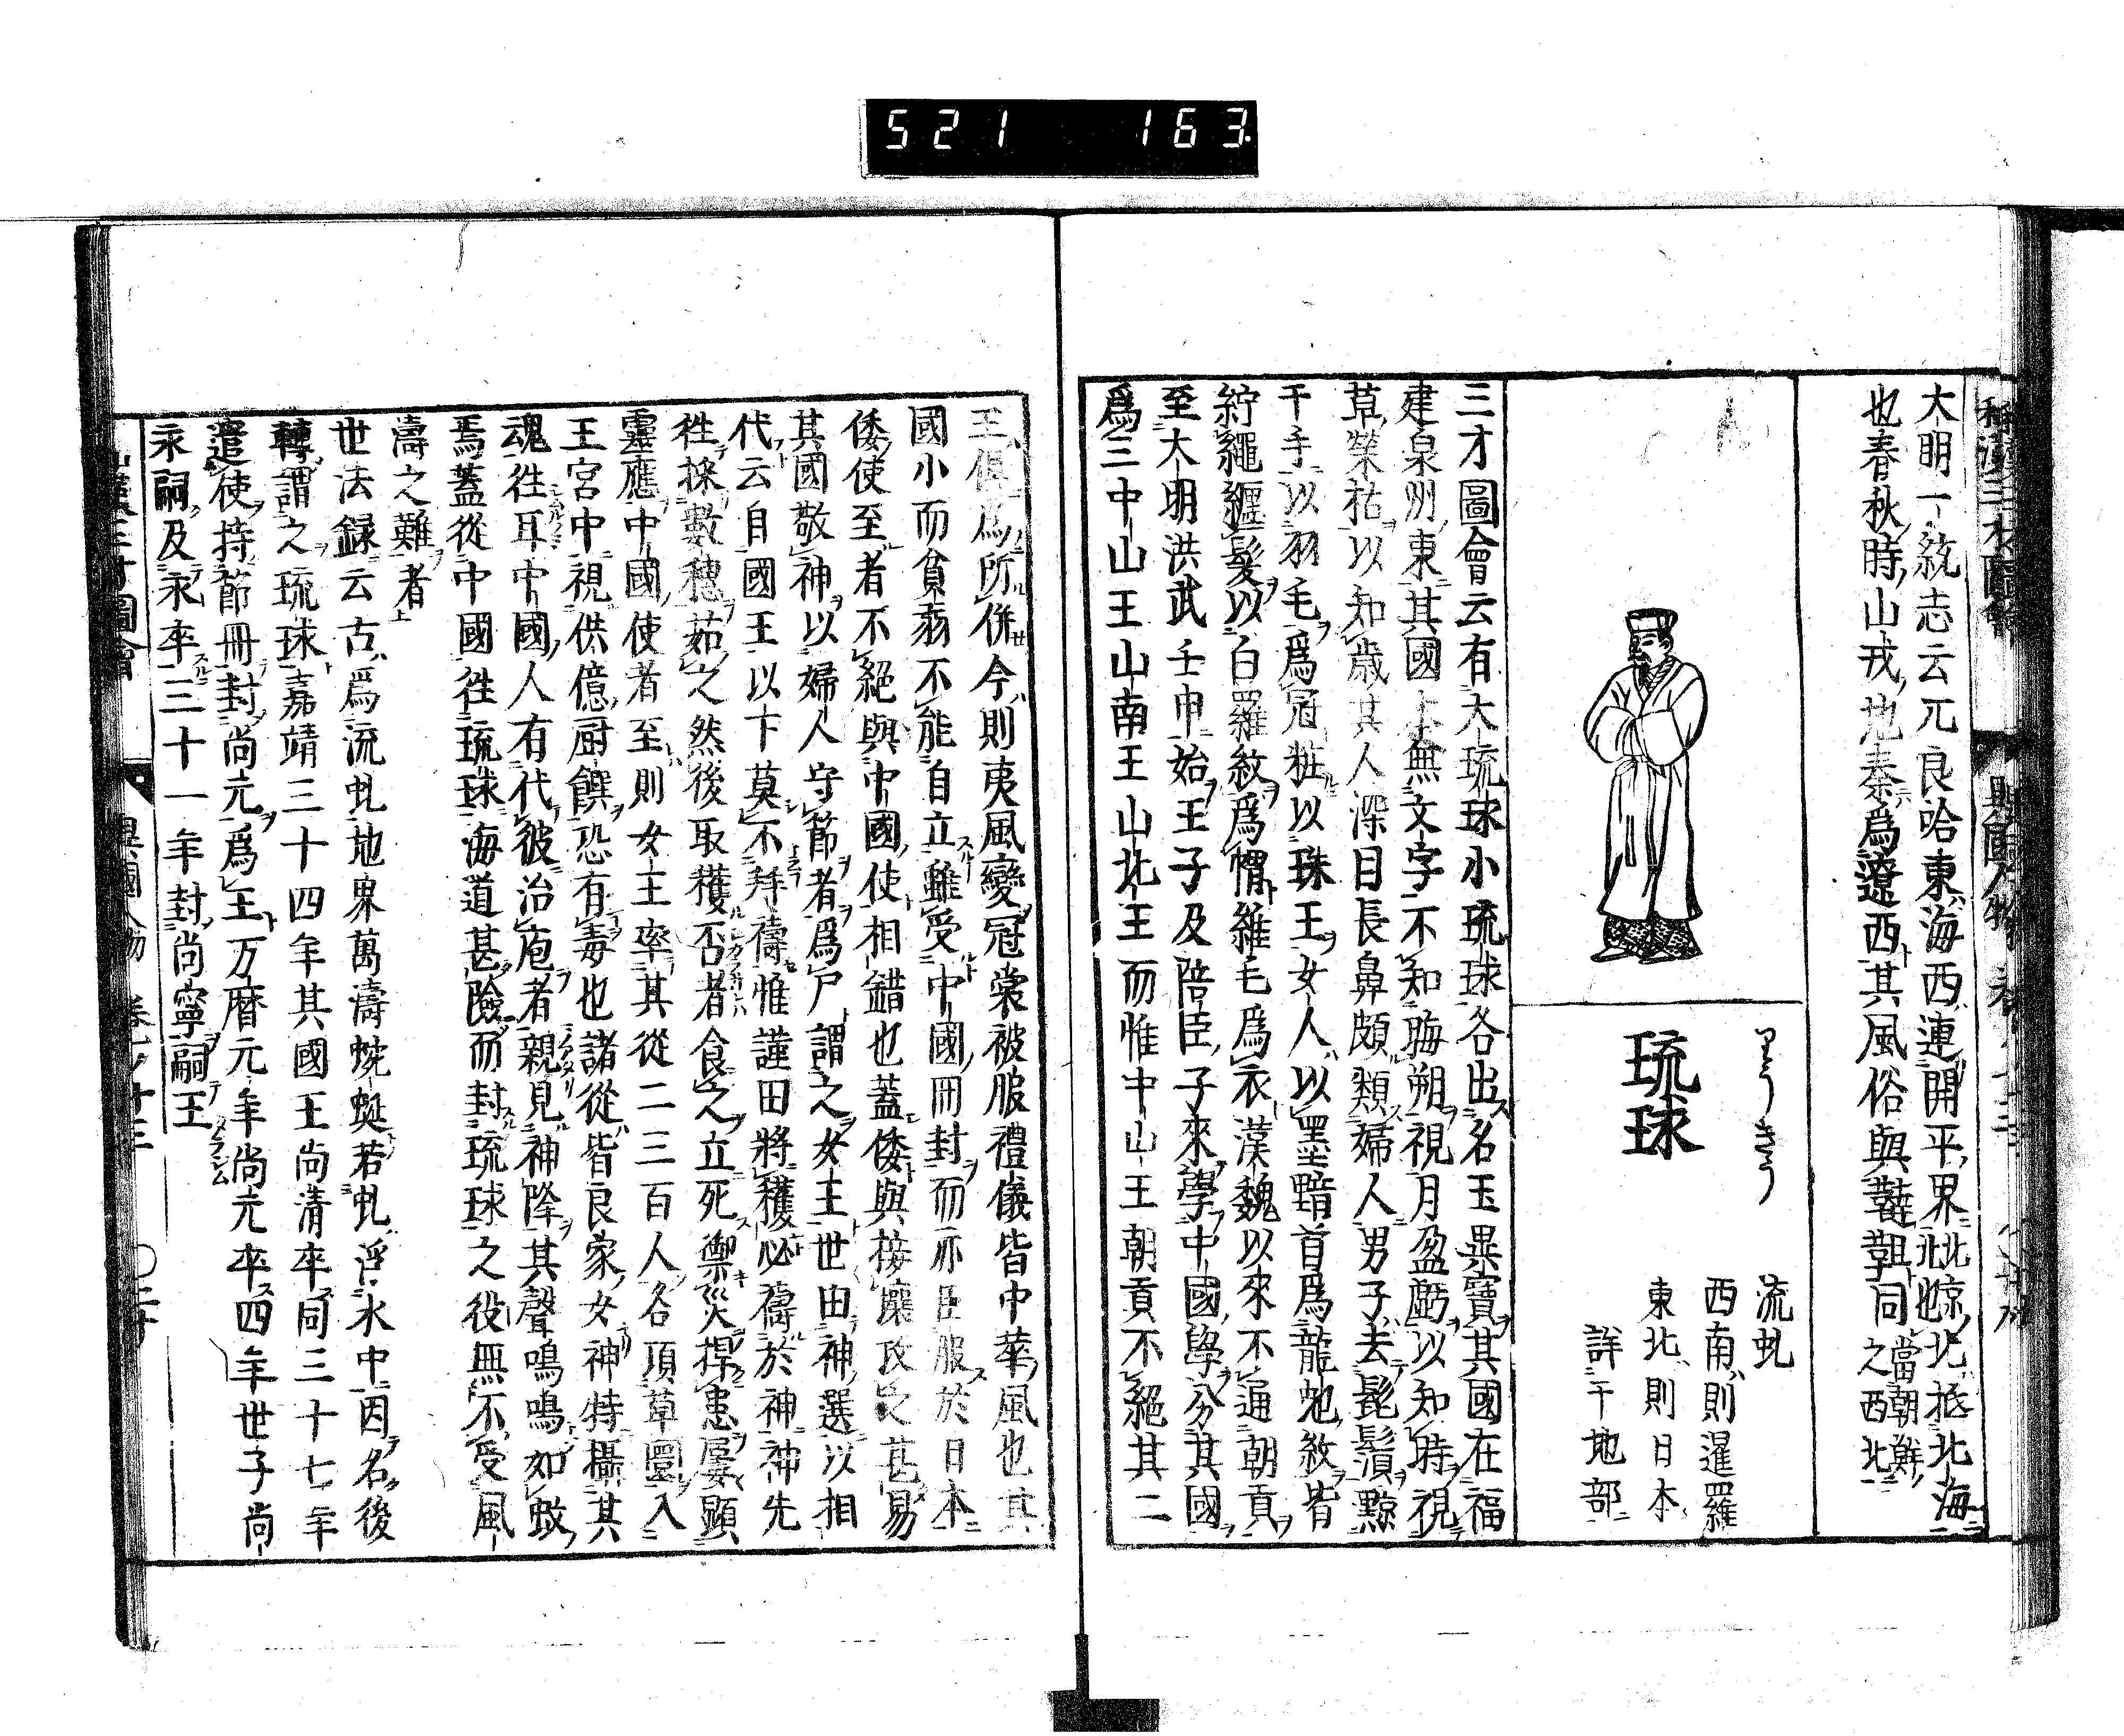 521 163
大明一統志云兀良哈東海西連開平界北境北抵北海
也春秋時山戎地秦爲遼西其風俗與韃靼同
北也當朝鮮
之西北
りうきう
琉球
流虬
西南則暹羅
東北則日本
詳于地部
三才圖會云有大琉球小琉球各出名玉異寶其國在福
建泉州東其國上無文字不知晦朔視月盈虧以知時視
草榮枯以知歳其人深目長鼻頗類婦人男子去髭鬚黥
于手以羽毛爲冠粧以珠玉女人以墨黥首爲龍虵紋皆
紵繩纏髮以白羅紋爲帽雜毛爲衣漢魏以來不通朝貢
至大明洪武壬申始王子及陪臣子來學中國學分其國
爲三中山王山南王山北王而惟中山王朝貢不絕其二
王俱爲所併今則夷風變冠裳被服禮儀皆中華風也其
國小而貧弱不能自立雖受中國冊封而亦臣服於日本
倭使至者不絕與中國使相錯也蓋倭與接壤攻之甚易
其國敬神以婦人守節者爲尸謂之女王世由神選以相
代云自國王以下莫不拜禱惟謹田將穫必禱於神神先
徃採數穗茹之然後取穫否者食之立死禦災捍患屢顯
靈應中國使者至則女王率其從二三百人各頂草圏入
王宮中視供億厨饌恐有毒也諸從皆良家女神特攝其
魂徃耳中國人有代彼治庖者親見神降其聲鳴鳴如蚊
焉蓋從中國徃琉球海道甚險而封琉球之役無不受風
濤之難者
世法録云古爲流虬地界萬濤蜿蜒若虬浮水中因名後
轉謂之琉球嘉靖三十四年其國王尚清卒同三十七年
遣使持節冊封尚元爲王万暦元年尚元卒四年世子尚
永嗣及永卒三十一年封尚寧嗣王